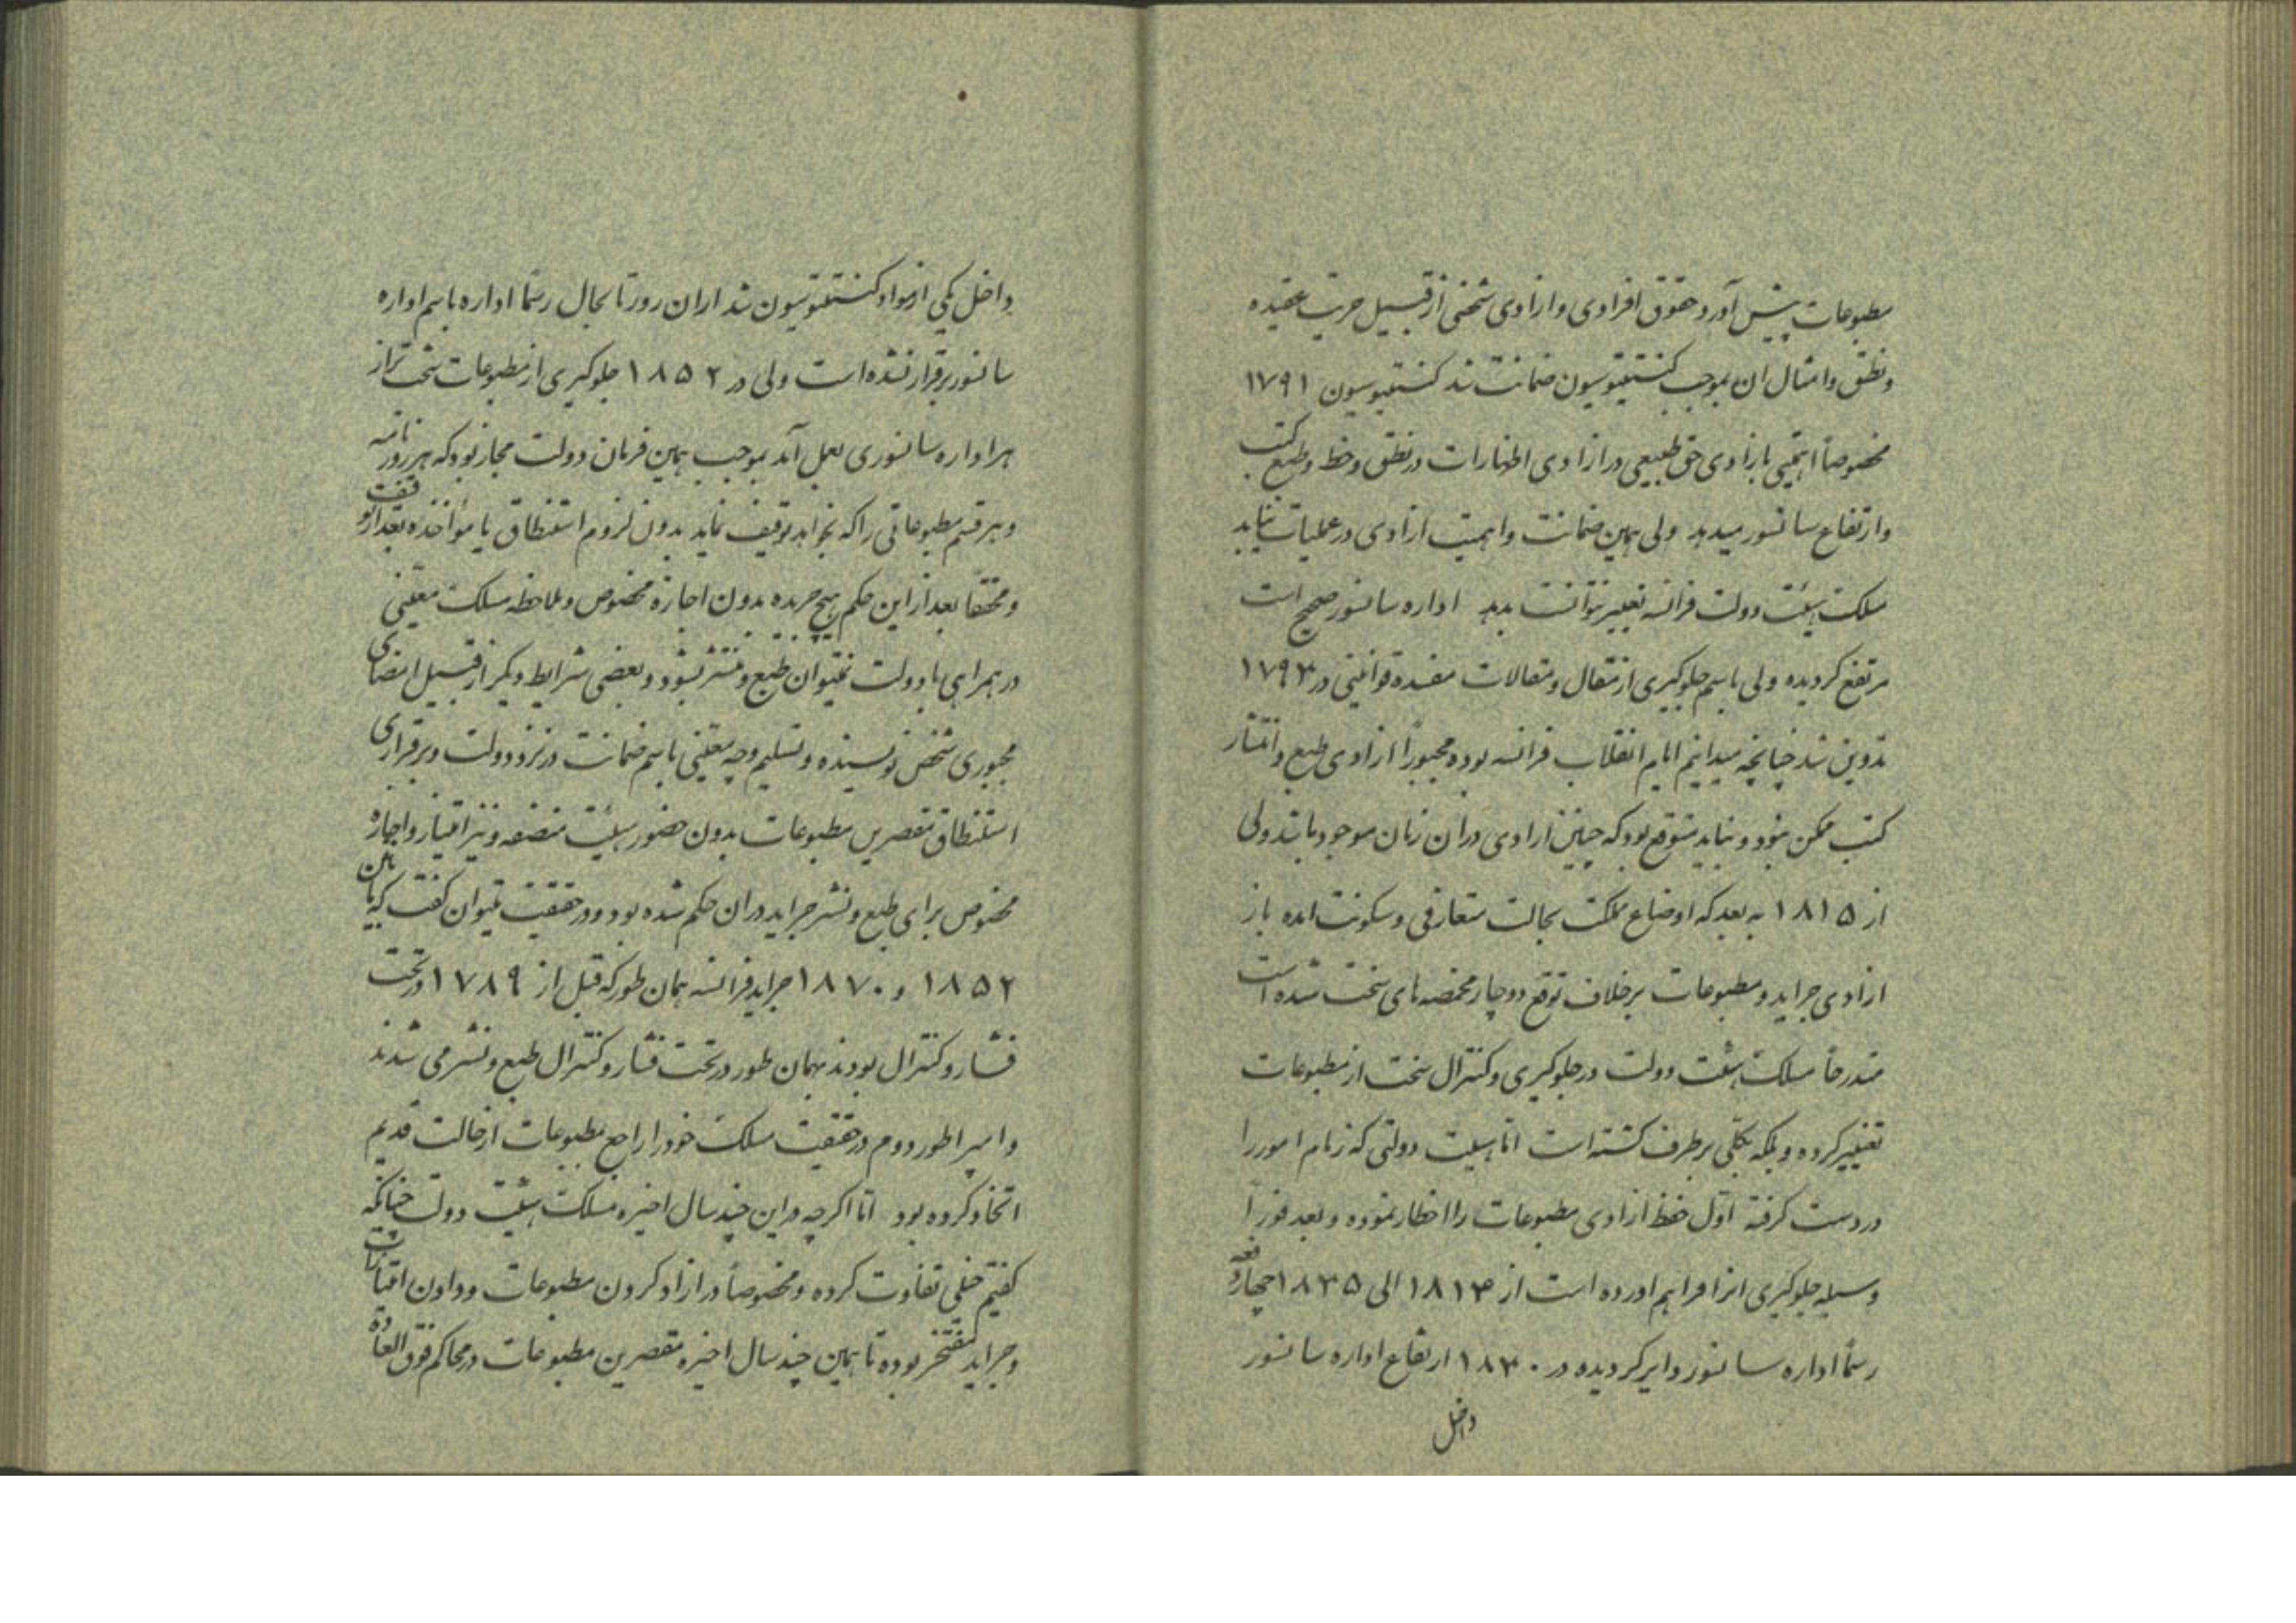 مطبوعات پیش آورد حقوق افرادی و ازادی شخصی از قبیل حریت عقیده
و نطق و امثال ان بموجب کنستیتوسیون ضمانت شد کنستیتوسیون ۱۷۹۱
مخصوصاً اهمیتی بازادی حق طبیعی در ازادی اظهارات در نطق و خط و طبع کتب
و ارتفاع سانسور میدهد ولی همین ضمانت و اهمیت ازادی در عملیات نباید
مسلک هیئت دولت فرانسه تغییر نتوانست بدهد اداره سانسور صحیح است
مرتفع کردیده ولی باسم جلوکیری از انتقال و مقالات مفسده قوانینی در ۱۷۹۳
تدوین شد چنانچه میدانیم ایام انقلاب فرانسه بوده مجبوراً ازادی طبع و انتشار
کتب ممکن نبود و نباید متوقع بود که چنین ازادی در ان زمان موجود باشد ولی
از ۱۸۱۵ به بعد که اوضاع مملکت بحالت متعارفی و سکونت امده باز
ازادی جراید و مطبوعات برخلاف توقع دوچار مخمصه های سخت شده است
متدرجاً مسلک هیئت دولت در جلوکیری و کنترال سخت از مطبوعات
تغییر کرده و بلکه بکلی برطرف کشته است امّا هیئت دولتی که زمام امور را
در دست کرفته اوّل حفظ ازادی مطبوعات را اخطار نموده و بعد فوراً
وسیله جلوکیری انرا فراهم اورده است از ۱۸۱۳ الی ۱۸۳۵ چهار دفعه
رسماً اداره سانسور دایر کردیده در ۱۸۳۰ ارتفاع اداره سانسور
داخل
داخل یکی از مواد کنستیتوسیون شد از ان روز تا بحال رسماً اداره باسم اداره
سانسور برقرار نشده است ولی در ۱۸۵۲ جلوکیری از مطبوعات سخت تر از
هر اداره سانسوری بعمل آمد بموجب همین فرمان دولت مجاز بود که هر روزنامه
و هر قسم مطبوعاتی را که بخواهد توقیف نماید بدون لزوم استنطاق یا مؤاخذه بعد از توقیف
و محققاً بعد از این حکم هیچ جریده بدون اجازه مخصوص و ملاحظه مسلک معیّنی
در همراهی با دولت نمیتوان طبع و منتشر بشود و بعضی شرایط دیکر از قبیل امضای
مجبوری شخص نویسنده و تسلیم وجه معیّنی باسم ضمانت در نزد دولت و برقراری
استنطاق مقصرین مطبوعات بدون حضور هیئت منصفه و نیز امتیاز و اجازه
مخصوص برای طبع و نشر جراید در ان حکم شده بود و در حقیقت میتوان کفت که مابین
۱۸۵۲ و ۱۸۷۰ جراید فرانسه همان طور که قبل از ۱۷۸۹ در تحت
فشار و کنترال بودند بهمان طور در تحت فشار و کنترال طبع و نشر می شدند
و امپراطور دوم در حقیقت مسلک خود را راجع بمطبوعات از حالت قدیم
اتخاذ کرده بود امّا اکرچه در این چند سال اخیره مسلک هیئت دولت چنانکه
کفتیم خیلی تفاوت کرده و مخصوصاً در ازاد کردن مطبوعات و دادن امتیازات
و جراید مفتخر بوده تا همین چند سال اخیره مقصرین مطبوعات در محاکم فوق العاده